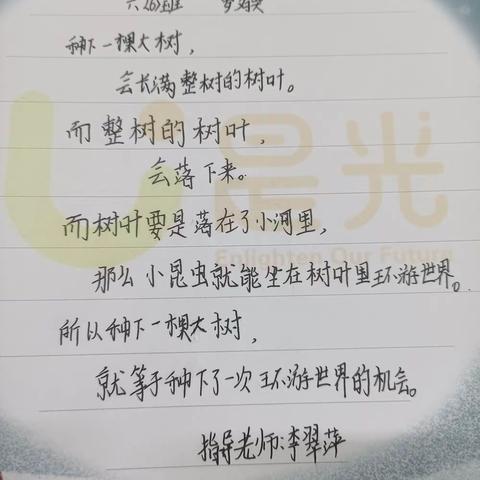 种下一棵大树，
会长满整树的树叶。
而整树的树叶，
会落下来。
而树叶要是落在了小河里，
那么小昆虫就能坐在树叶里环游世界。
所以种下一棵大树，
就等于种下了一次环游世界的机会。
指导老师：李翠萍
晨光
Enlighten Our Future